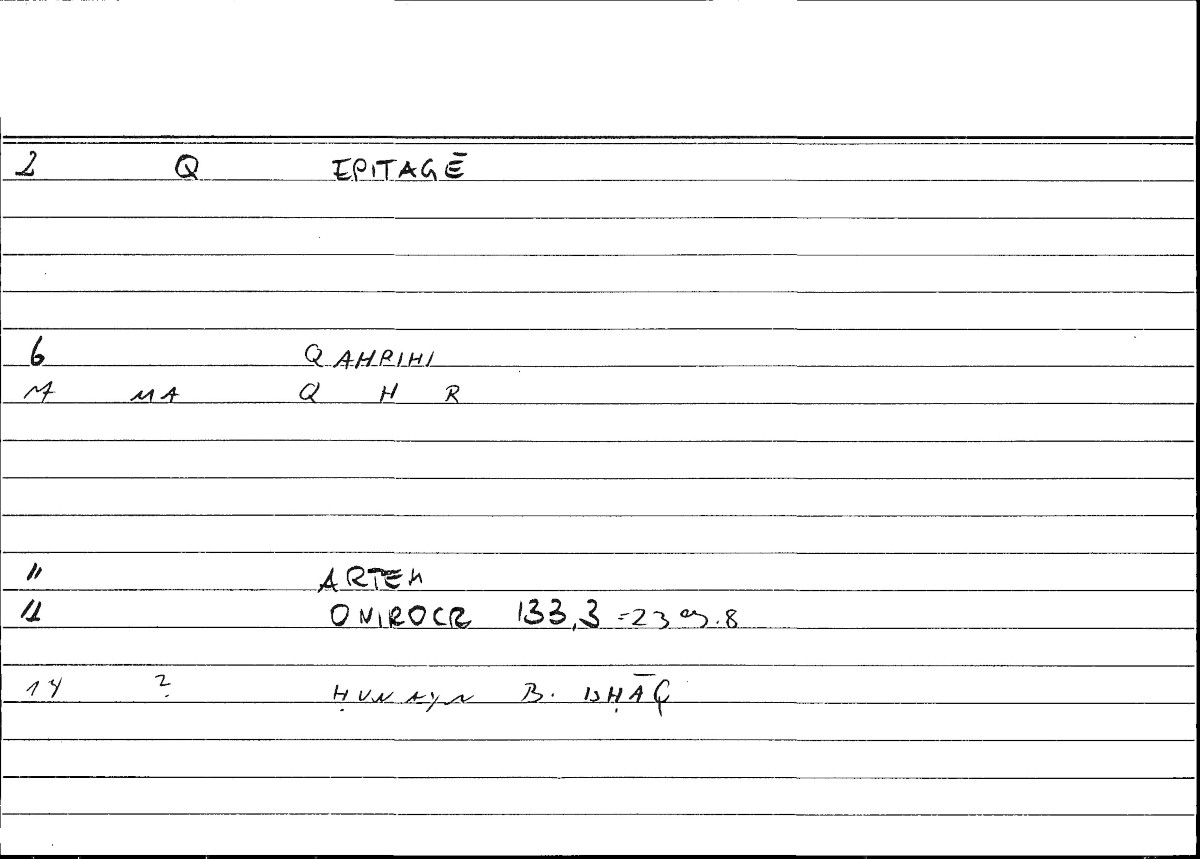 2 Q EPITAGĒ
6 QAHRIHI
M MA Q H R
11 ARTEM
12 ONIROCR 133,3 =23 .8
14 ? ḤUNAYN B. ISḤĀQ